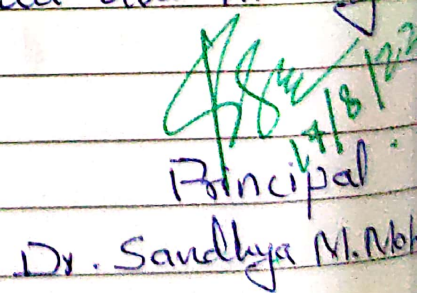 14/8/22
Principal
Dr. Sandhya M. Moh